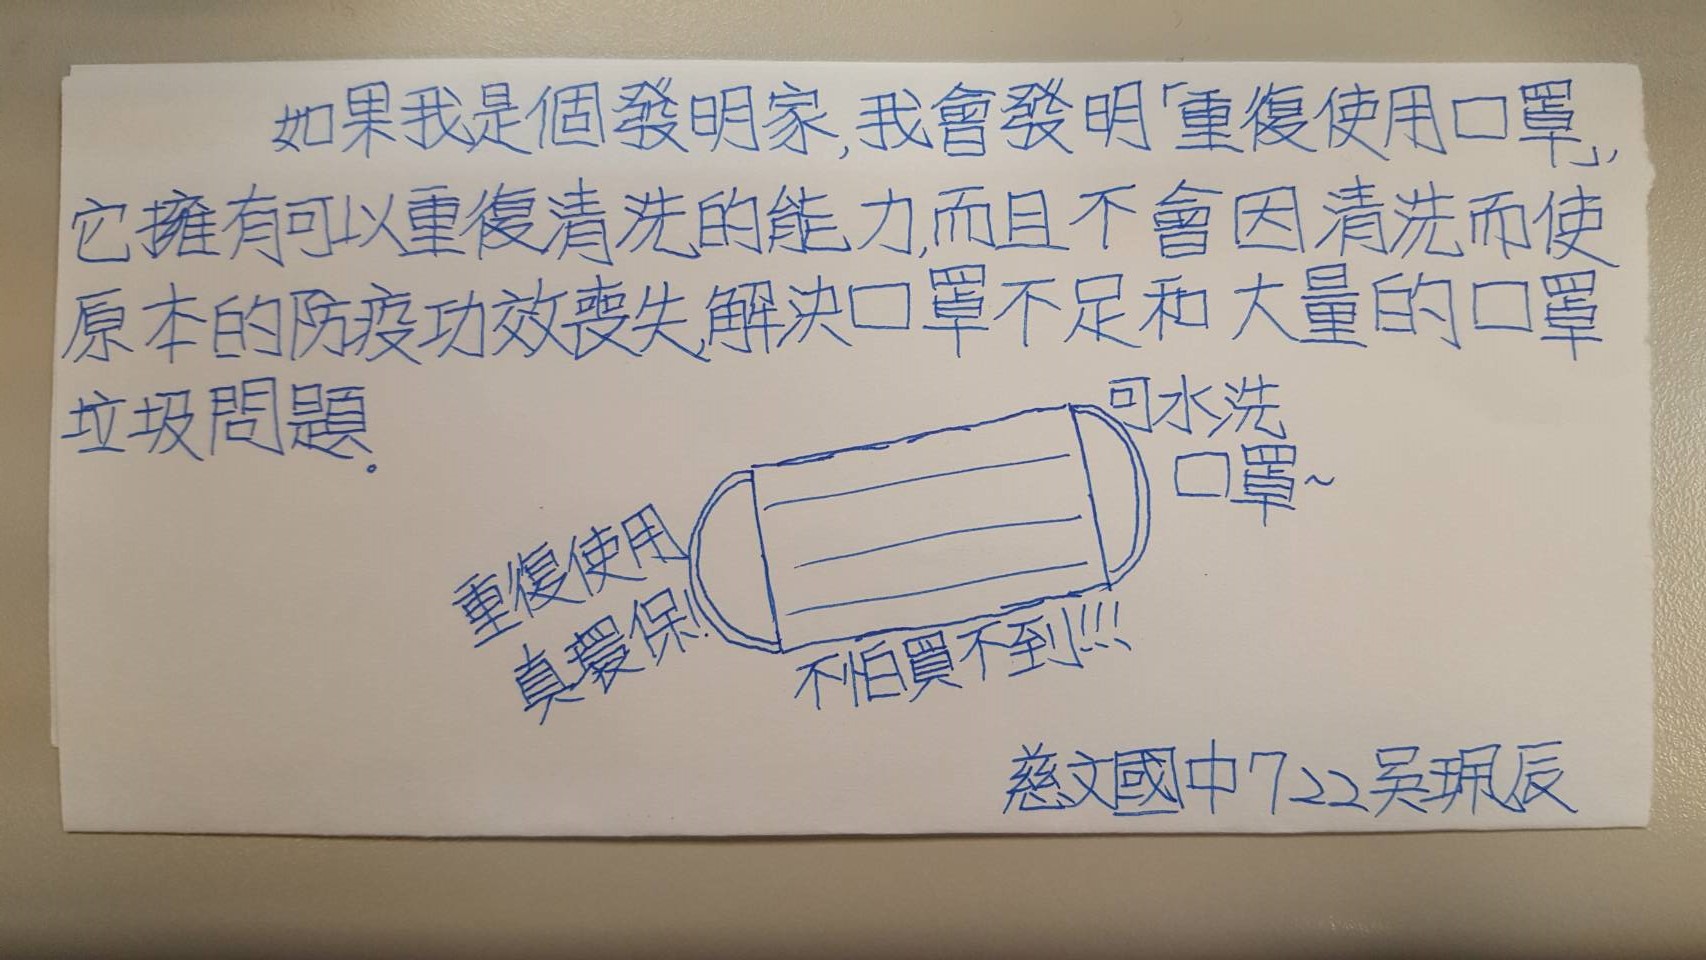 如果我是個發明家,我會發明「重復使用口罩」,
它擁有可以重復清洗的能力,而且不會因清洗而使
原本的防疫功效喪失,解決口罩不足和大量的口罩
垃圾問題。
可水洗
口罩~
重復使用
真環保!
不怕買不到!!!
慈文國中722吳玥辰